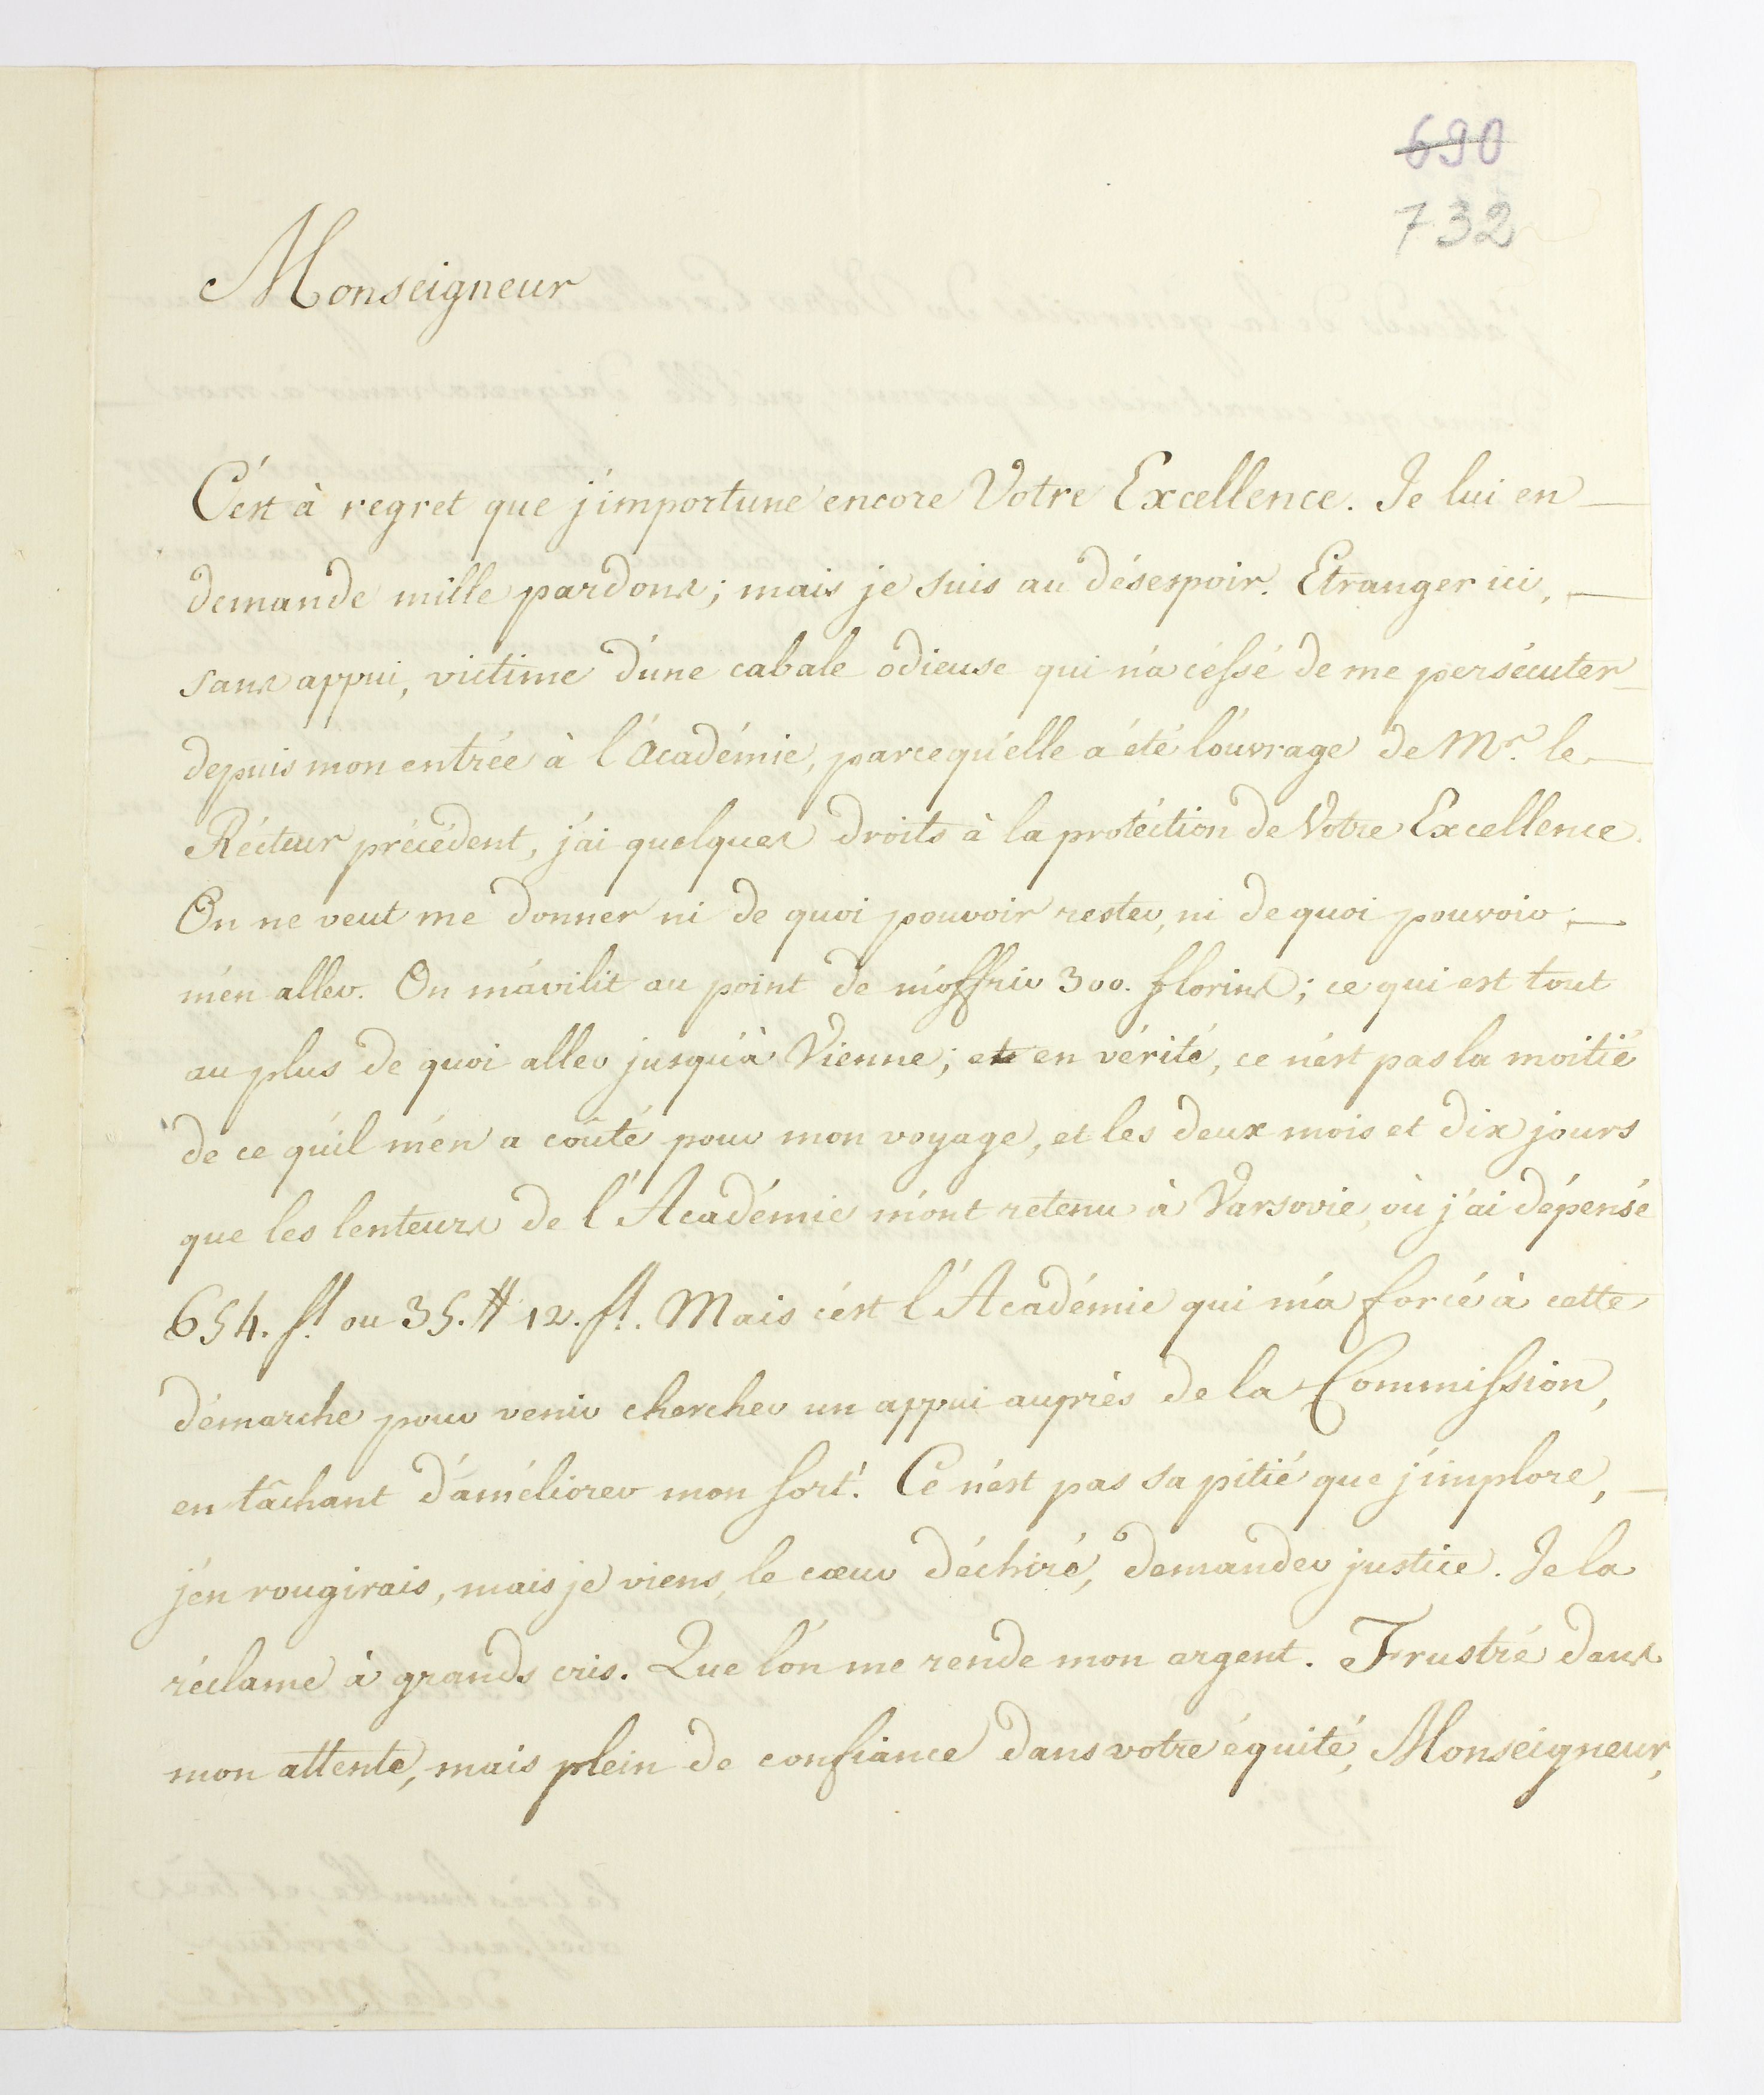 690
732
Monseigneur
C'est à regret que j'importune encore Votre Excellence. Je lui en —
demande mille pardons; mais je suis au désespoir. Etranger ici, —
sans appui, victime d'une cabale odieuse qui n'a céssé de me persécuter —
depuis mon entrée à l'Académie, parcequ'elle a été l'ouvrage de Mr. le —
Récteur précédent, j'ai quelques droits à la protéction de Votre Excellence.
On ne veut me donner ni de quoi pouvoir rester, ni de quoi pouvoir —
m'en aller. On m'avilit au point de m'offrir 300. florins; ce qui est tout
au plus de quoi aller jusqu'à Vienne; et en vérité, ce n'est pas la moitié
de ce qu'il m'en a coûté pour mon voyage, et les deux mois et dix jours
que les lenteurs de l'Académie m'ont retenu à Varsovie, où j'ai dépensé
654. fl. ou 35. # 12. fl. Mais c'est l'Académie qui m'a forcé à cette
démarche pour venir chercher un appui auprès de la Commission,
en tâchant d'améliorer mon sort. Ce n'est pas sa pitié que j'implore, —
j'en rougirais, mais je viens, le cœur déchiré, demander justice. Je la
réclame à grands cris. Que l'on me rende mon argent. Frustré dans
mon attente, mais plein de confiance dans votre équité, Monseigneur,